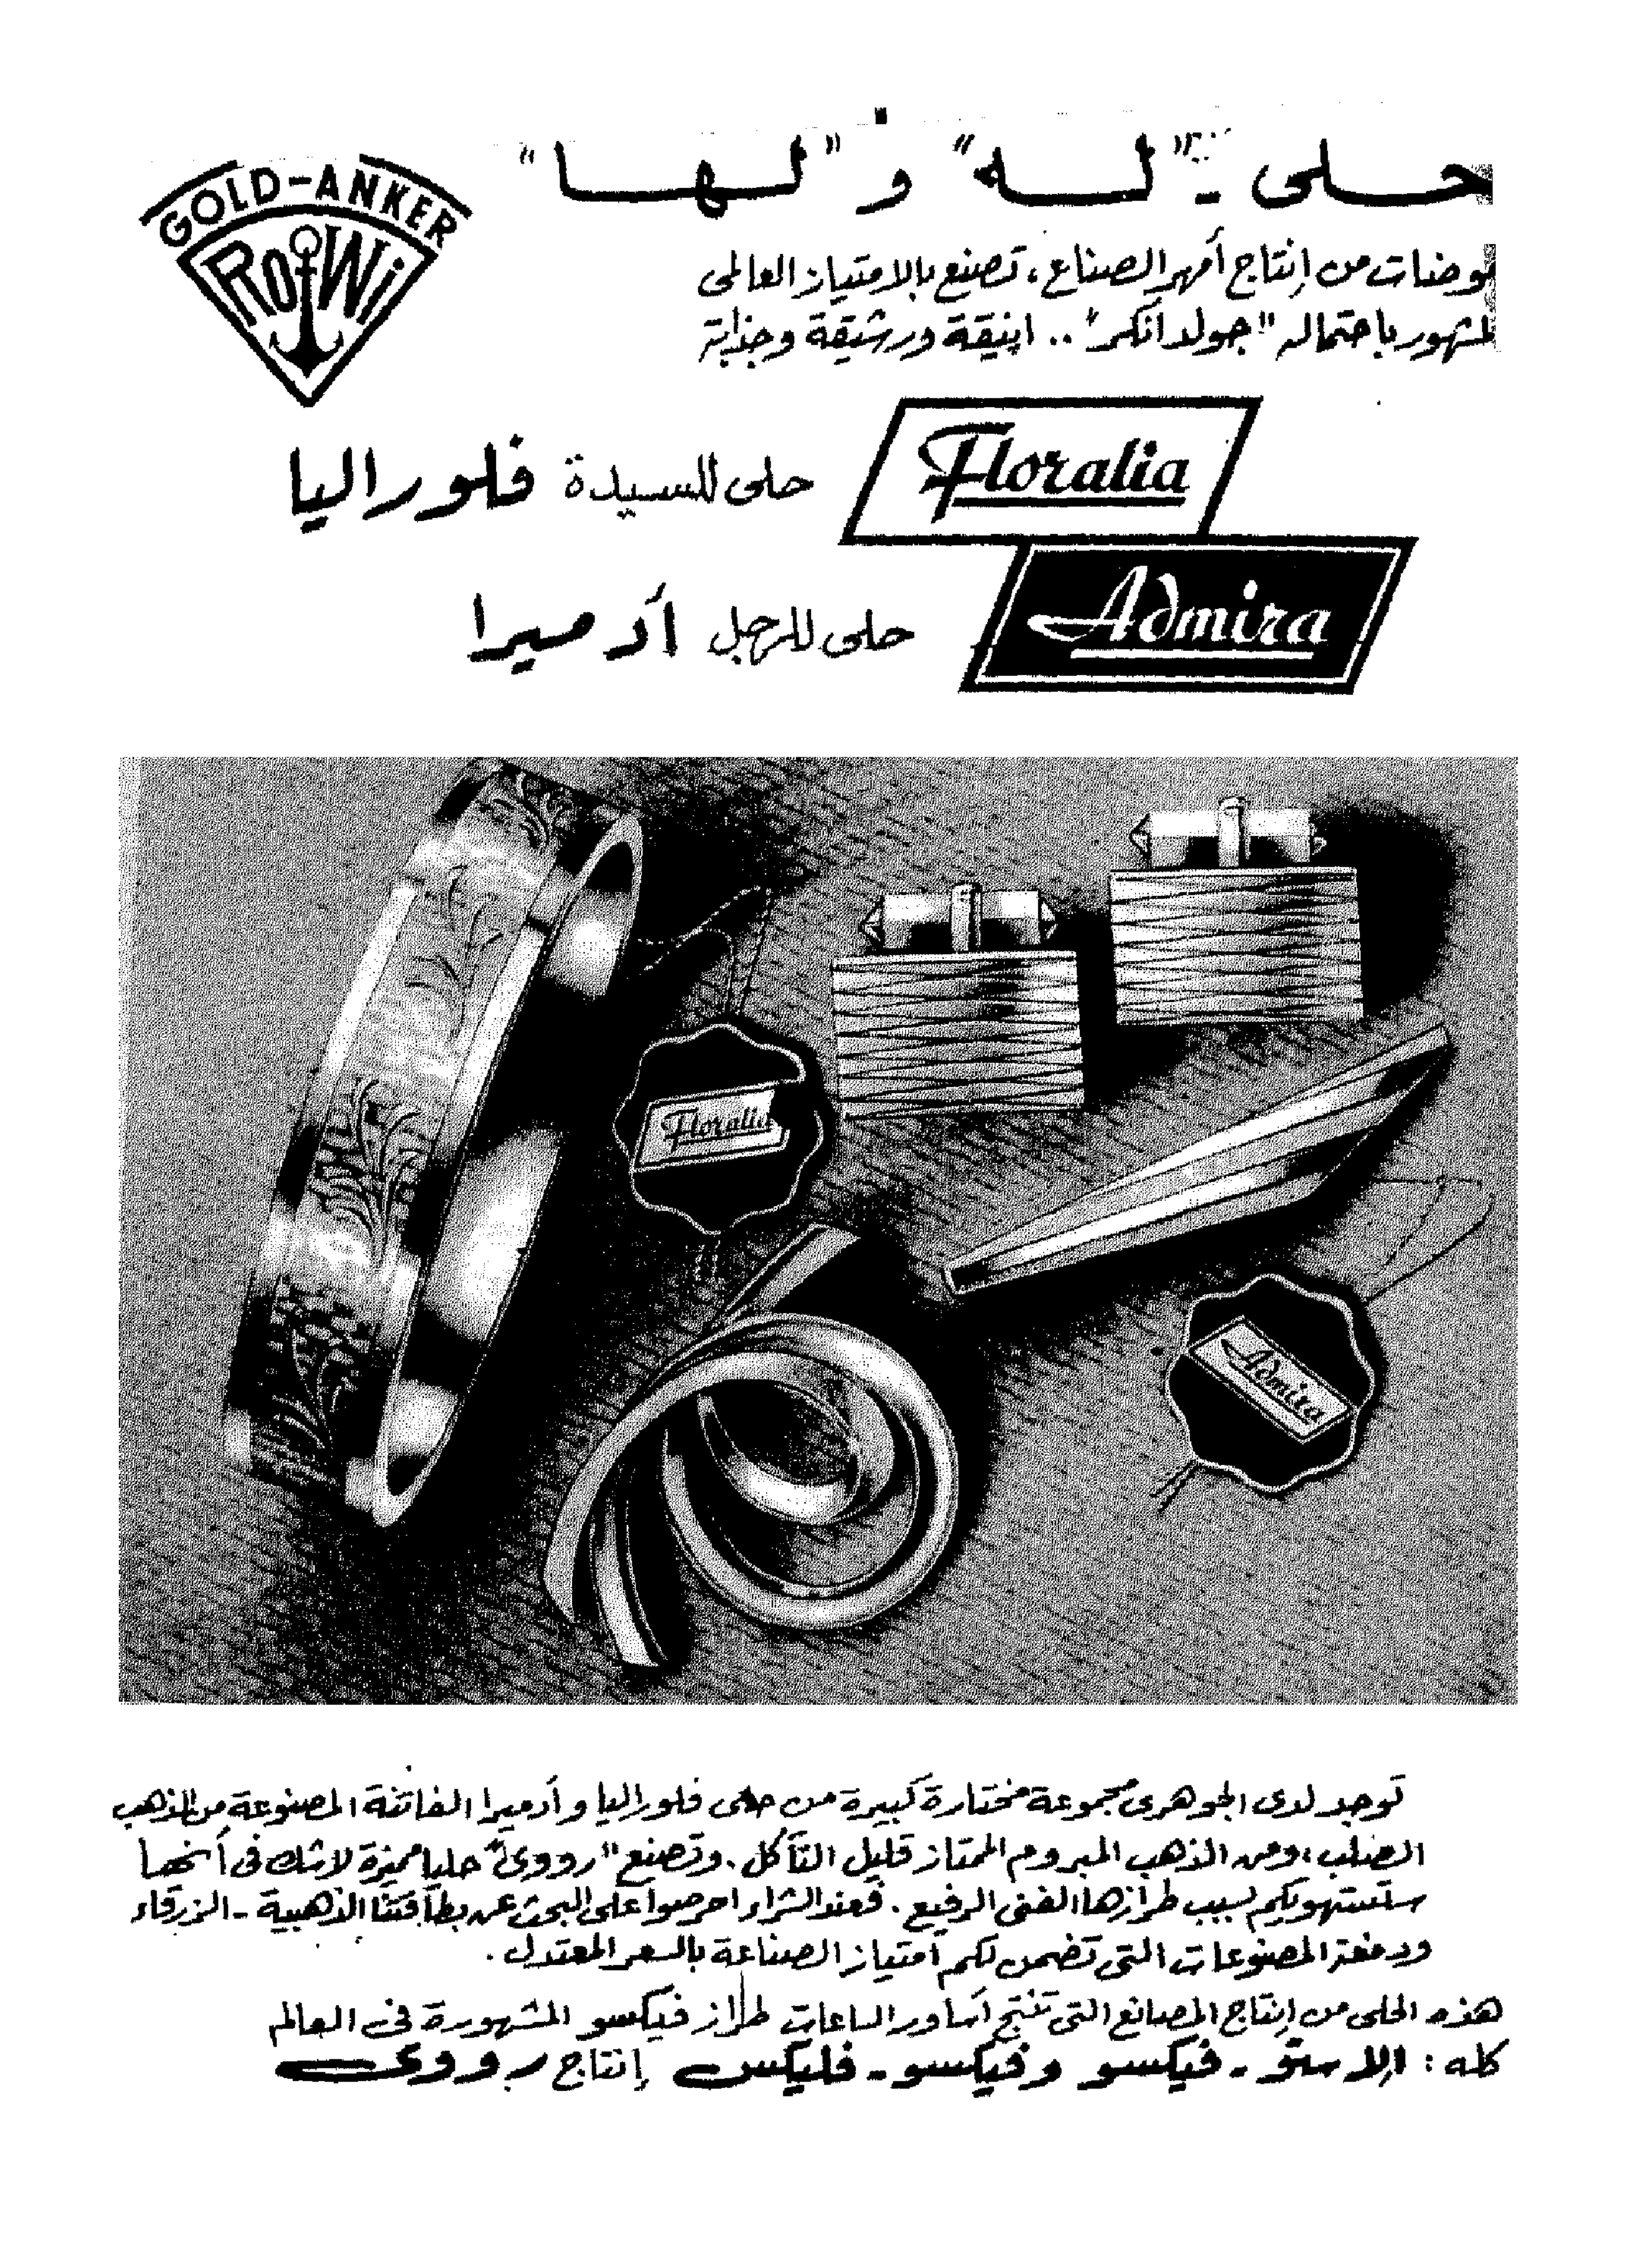 حلى - "له" و "لها"
GOLD-ANKER
RoWi
موضات من إنتاج أمهر الصناع، تصنع بالامتياز العالمى
المشهور باحتماله "جولد أنكر" .. انيقة ورشيقة وجذابة
Floralia
حلى للسيدة فلوراليا
Admira
حلى للرجل أدميرا
Floralia
Admira
توجد لدى الجوهرى مجموعة مختارة كبيرة من حلى فلوراليا وأدميرا الفاتنة المصنوعة من الذهب
الصلب، ومن الذهب المبروم الممتاز قليل التآكل. وتصنع "رووى" حليا مميزة لاشك فى أنها
ستستهويكم بسبب طرازها الفنى الرفيع. فعند الشراء احرصوا على البحث عن بطاقتنا الذهبية - الزرقاء
ودمغة المصنوعات التى تضمن لكم امتياز الصناعة بالسعر المعتدل.
هذه الحلى من إنتاج المصانع التى تنتج أساور الساعات طراز فيكسو المشهورة فى العالم
كله : إلاستو - فيكسو وفيكسو - فليكس إنتاج رووى